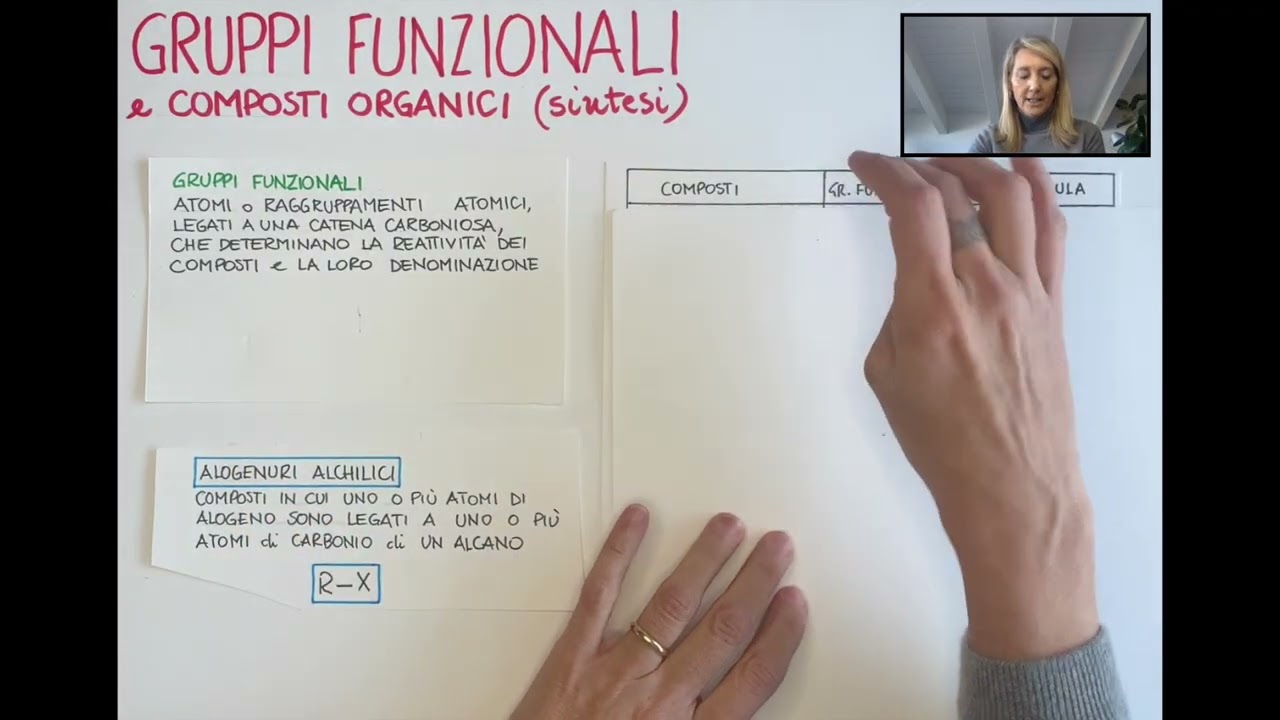 GRUPPI FUNZIONALI
e COMPOSTI ORGANICI (sintesi)
GRUPPI FUNZIONALI
ATOMI o RAGGRUPPAMENTI ATOMICI,
LEGATI A UNA CATENA CARBONIOSA,
CHE DETERMINANO LA REATTIVITÀ DEI
COMPOSTI e LA LORO DENOMINAZIONE
ALOGENURI ALCHILICI
COMPOSTI IN CUI UNO O PIÙ ATOMI DI
ALOGENO SONO LEGATI A UNO O PIÙ
ATOMI di CARBONIO di UN ALCANO
R-X
COMPOSTI GR.